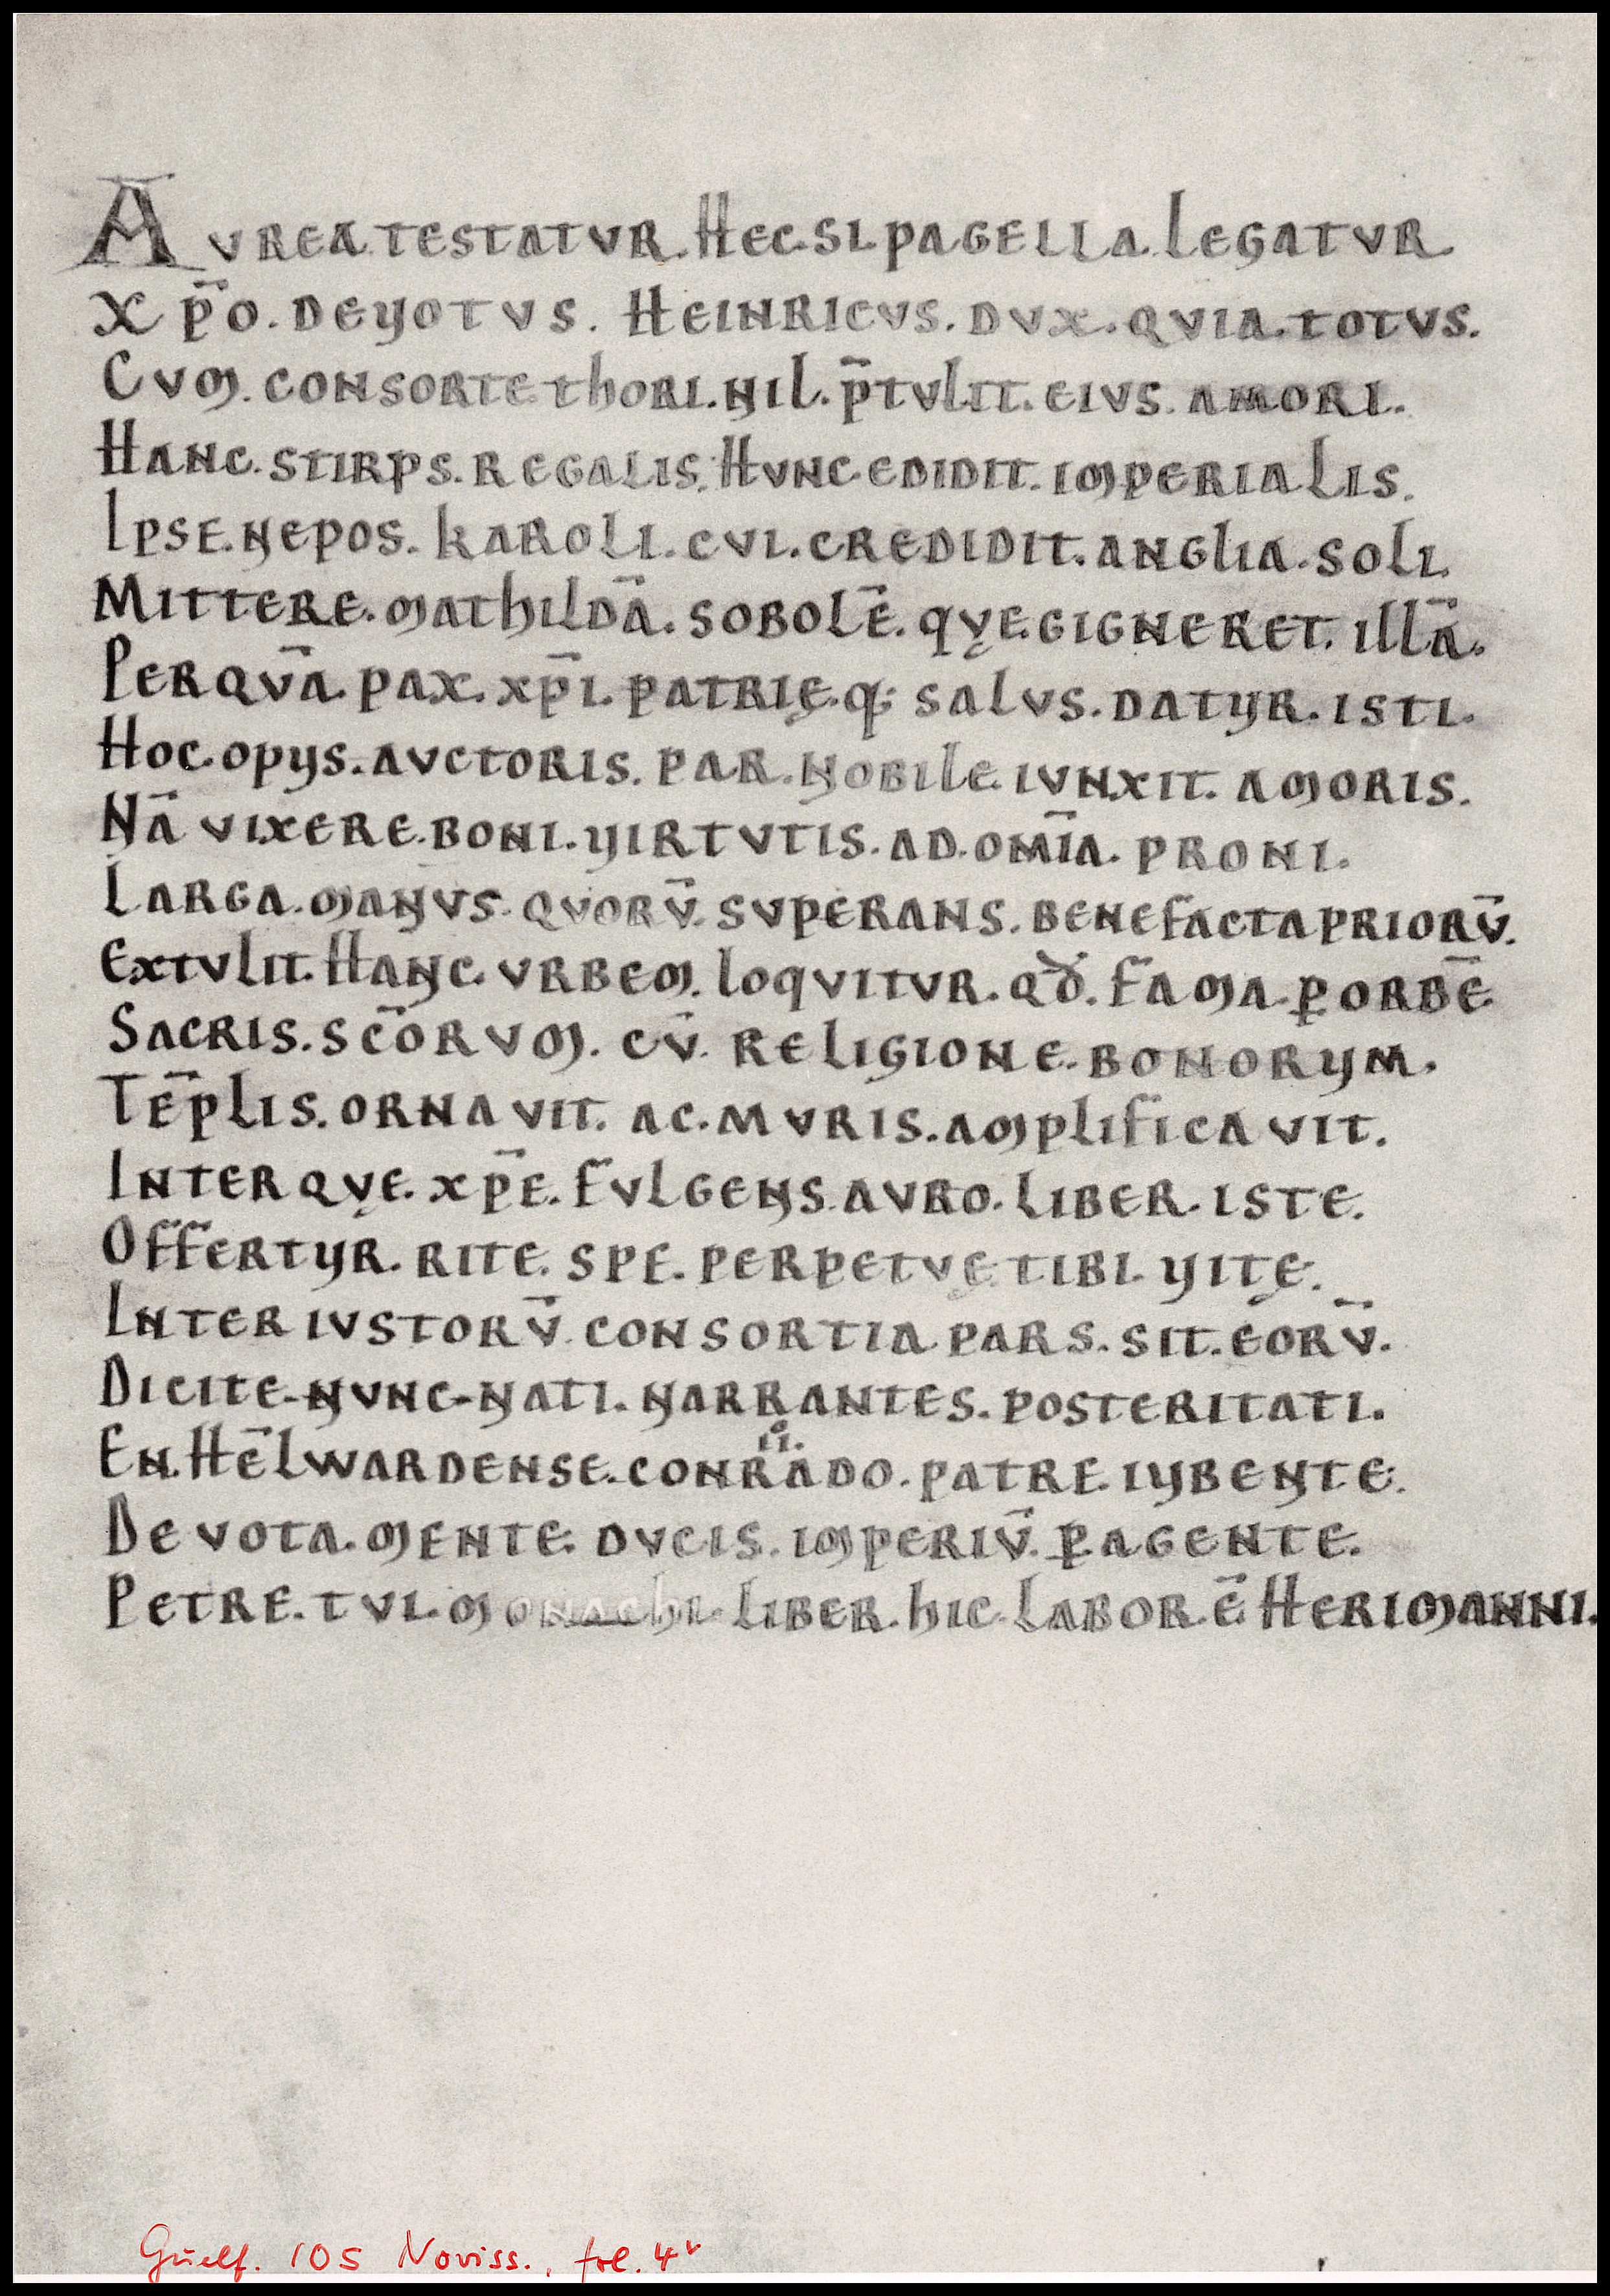 AVREA.TESTATVR.HEC.SI.PAGELLA.LEGATVR
XP̄O.DEVOTVS.HEINRICVS.DVX.QVIA.TOTVS.
CVM.CONSORTE.THORI.NIL.P̄TVLIT.EIVS.AMORI.
HANC.STIRPS.REGALIS.HVNC.EDIDIT.IMPERIALIS.
IPSE.NEPOS.KAROLI.CVI.CREDIDIT.ANGLIA.SOLI.
MITTERE.MATHILDĀ.SOBOLĒ.QVĘ.GIGNERET.ILLĀ.
PER QVĀ.PAX.XP̄I.PATRIĘ.Q; SALVS.DATVR.ISTI.
HOC.OPVS.AVCTORIS.PAR.NOBILE.IVNXIT.AMORIS.
NĀ VIXERE.BONI.VIRTVTIS.AD.OMĪA.PRONI.
LARGA.MANVS.QVORV̄.SVPERANS.BENEFACTA PRIORV̄.
EXTVLIT.HANC.VRBEM.LOQVITVR.QĐ.FAMA.ꝐORBĒ
SACRIS.SC̄ORVM.CV̄.RELIGIONE.BONORVM.
TĒPLIS.ORNAVIT.AC.MVRIS.AMPLIFICAVIT.
INTER QVĘ.XP̄E.FVLGENS.AVRO.LIBER.ISTE.
OFFERTVR.RITE.SPE.PERPETVĘ.TIBI.VITĘ.
INTER IVSTORV̄.CONSORTIA.PARS.SIT.EORV̄.
DICITE.NVNC.NATI.NARRANTES.POSTERITATI.
EN.HĒLWARDENSE.CONRADO.PATRE.IVBENTE.
DEVOTA.MENTE.DVCIS.IMPERIV̄.ꝐAGENTE.
PETRE.TVI.MONACHI.LIBER.HIC.LABOR.Ē HERIMANNI.
Guelf. 105 Noviss., fol. 4v